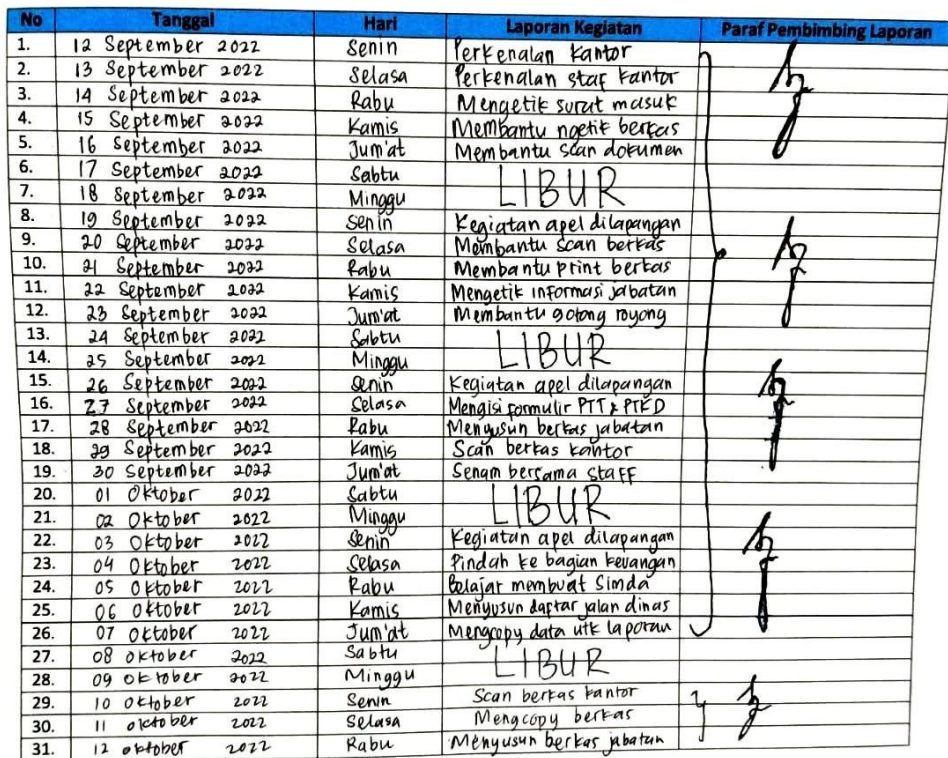 No Tanggal Hari Laporan Kegiatan Paraf Pembimbing Laporan
1. 12 September 2022 Senin Perkenalan kantor
2. 13 September 2022 Selasa Perkenalan staf kantor
3. 14 September 2022 Rabu Mengetik surat masuk
4. 15 September 2022 Kamis Membantu ngetik berkas
5. 16 September 2022 Jum'at Membantu scan dokumen
6. 17 September 2022 Sabtu
LIBUR
7. 18 September 2022 Minggu
8. 19 September 2022 Senin Kegiatan apel dilapangan
9. 20 September 2022 Selasa Membantu scan berkas
10. 21 September 2022 Rabu Membantu print berkas
11. 22 September 2022 Kamis Mengetik informasi jabatan
12. 23 September 2022 Jum'at Membantu gotong royong
13. 24 September 2022 Sabtu
LIBUR
14. 25 September 2022 Minggu
15. 26 September 2022 Senin Kegiatan apel dilapangan
16. 27 September 2022 Selasa Mengisi formulir PTT & PTKD
17. 28 September 2022 Rabu Menyusun berkas jabatan
18. 29 September 2022 Kamis Scan berkas kantor
19. 30 September 2022 Jum'at Senam bersama staff
20. 01 Oktober 2022 Sabtu
LIBUR
21. 02 Oktober 2022 Minggu
22. 03 Oktober 2022 Senin Kegiatan apel dilapangan
23. 04 Oktober 2022 Selasa Pindah ke bagian keuangan
24. 05 Oktober 2022 Rabu Belajar membuat Simda
25. 06 Oktober 2022 Kamis Menyusun daftar jalan dinas
26. 07 Oktober 2022 Jum'at Mengcopy data utk laporan
27. 08 Oktober 2022 Sabtu
LIBUR
28. 09 Oktober 2022 Minggu
29. 10 Oktober 2022 Senin Scan berkas kantor
30. 11 Oktober 2022 Selasa Mengcopy berkas
31. 12 Oktober 2022 Rabu Menyusun berkas jabatan